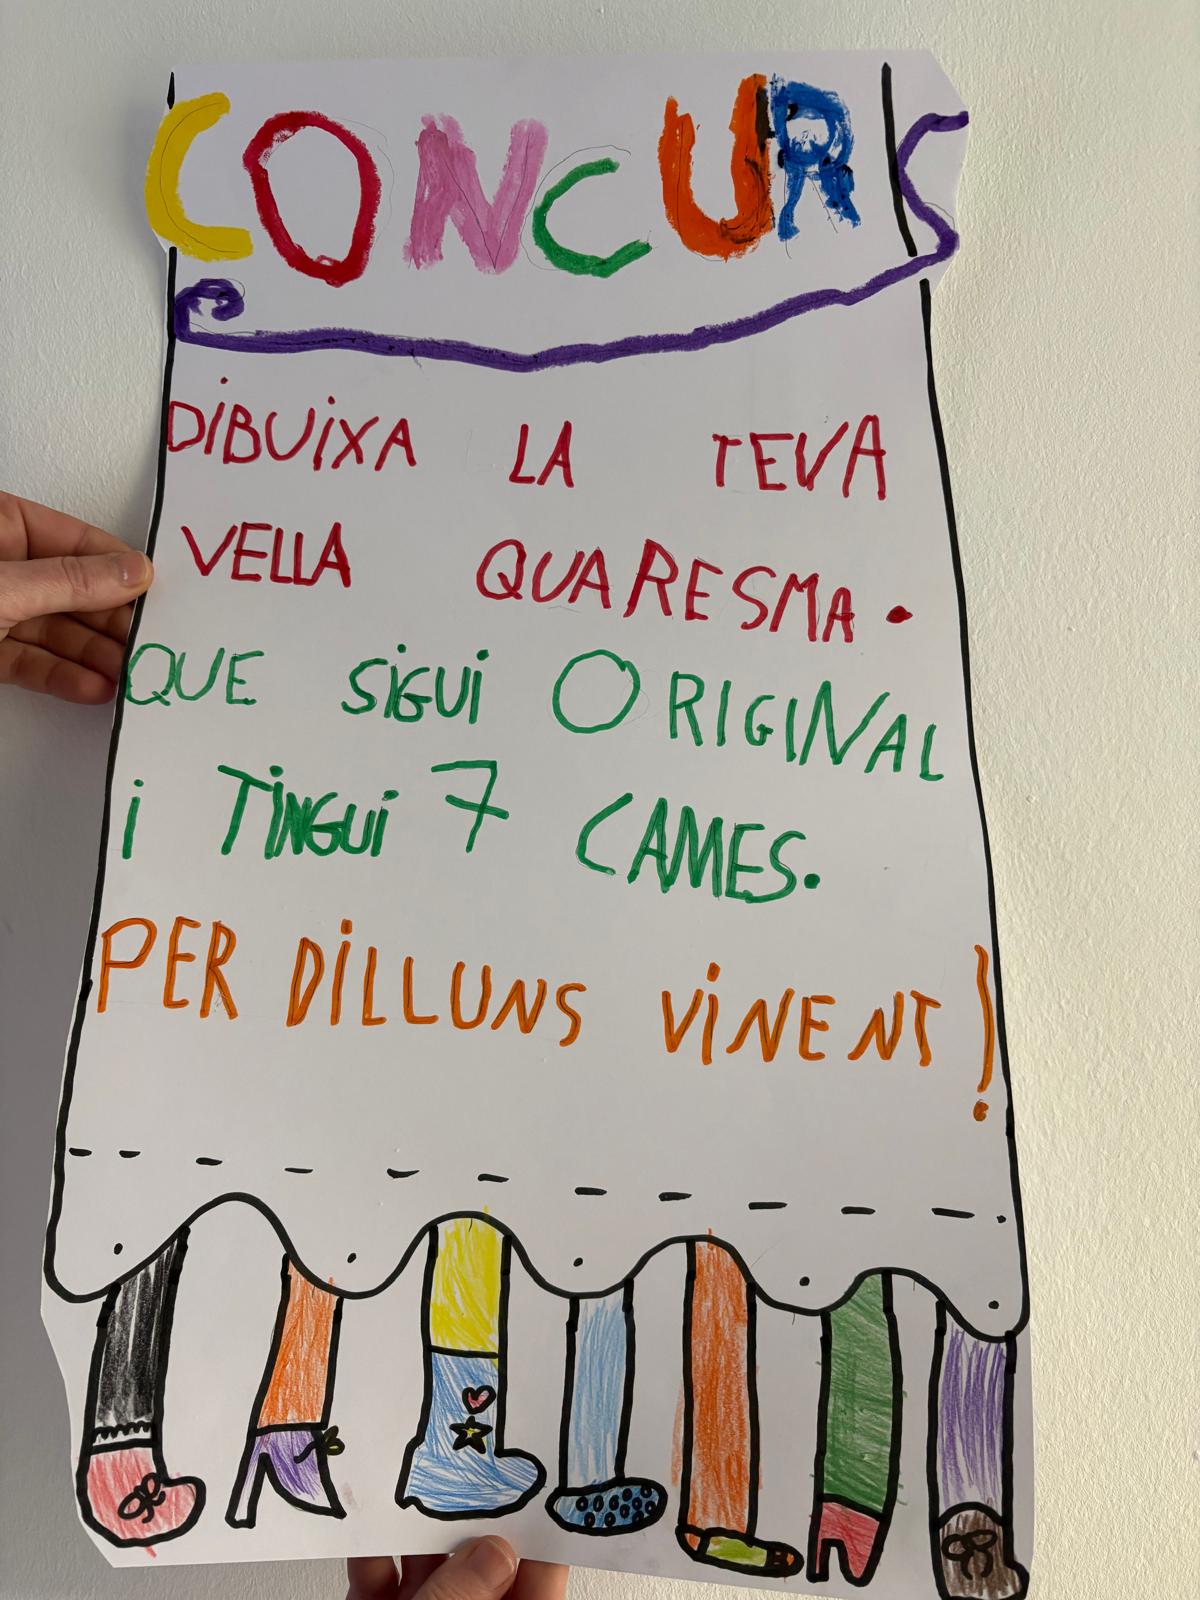 CONCURS
DiBUiXA LA TEVA
VELLA QUARESMA.
QUE SiGUi ORIGINAL
i TiNGUi 7 CAMES.
PER DiLLUNS ViNENT!